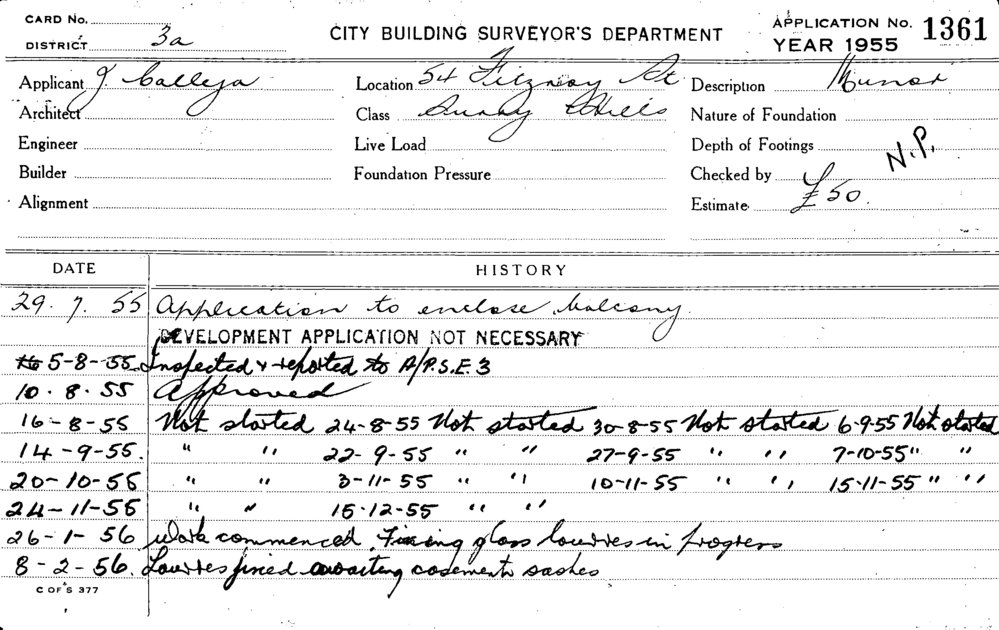 CARD No.
DISTRICT 3a
CITY BUILDING SURVEYOR'S DEPARTMENT
APPLICATION No. 1361
YEAR 1955
Applicant J. Calleja
Location 54 Fitzroy St
Description Minor
Architect
Class Surry Hills
Nature of Foundation
Engineer
Live Load
Depth of Footings
N.P.
Builder
Foundation Pressure
Checked by
Alignment
Estimate £50.
DATE HISTORY
29. 7. 55 Application to enclose balcony
DEVELOPMENT APPLICATION NOT NECESSARY
5-8-55. Inspected & reported to A/P.S.E.3
10.8.55 Approved
16-8-55 Not started 24-8-55 Not started 30-8-55 Not started 6-9-55 Not started
14-9-55. " " 22-9-55 " " 27-9-55 " " 7-10-55 " "
20-10-55 " " 3-11-55 " " 10-11-55 " " 15-11-55 " "
24-11-55 " " 15-12-55 " "
26-1-56 Work commenced. Fixing glass louvres in progress
8-2-56. Louvres fixed awaiting casement sashes
C OF S 377